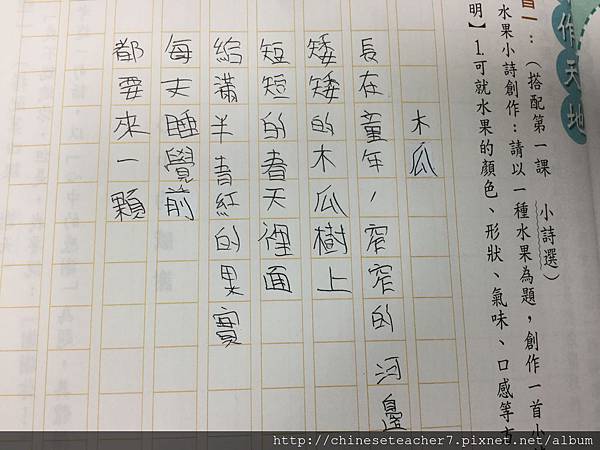 作天地
目一：（搭配第一課 小詩選）
水果小詩創作：請以一種水果為題，創作一首小
明】1.可就水果的顏色、形狀、氣味、口感等方
木瓜
長在童年，窄窄的河邊
矮矮的木瓜樹上
短短的春天裡面
給滿半青紅的果實
每天睡覺前
都要來一顆
http://chineseteacher7.pixnet.net/album